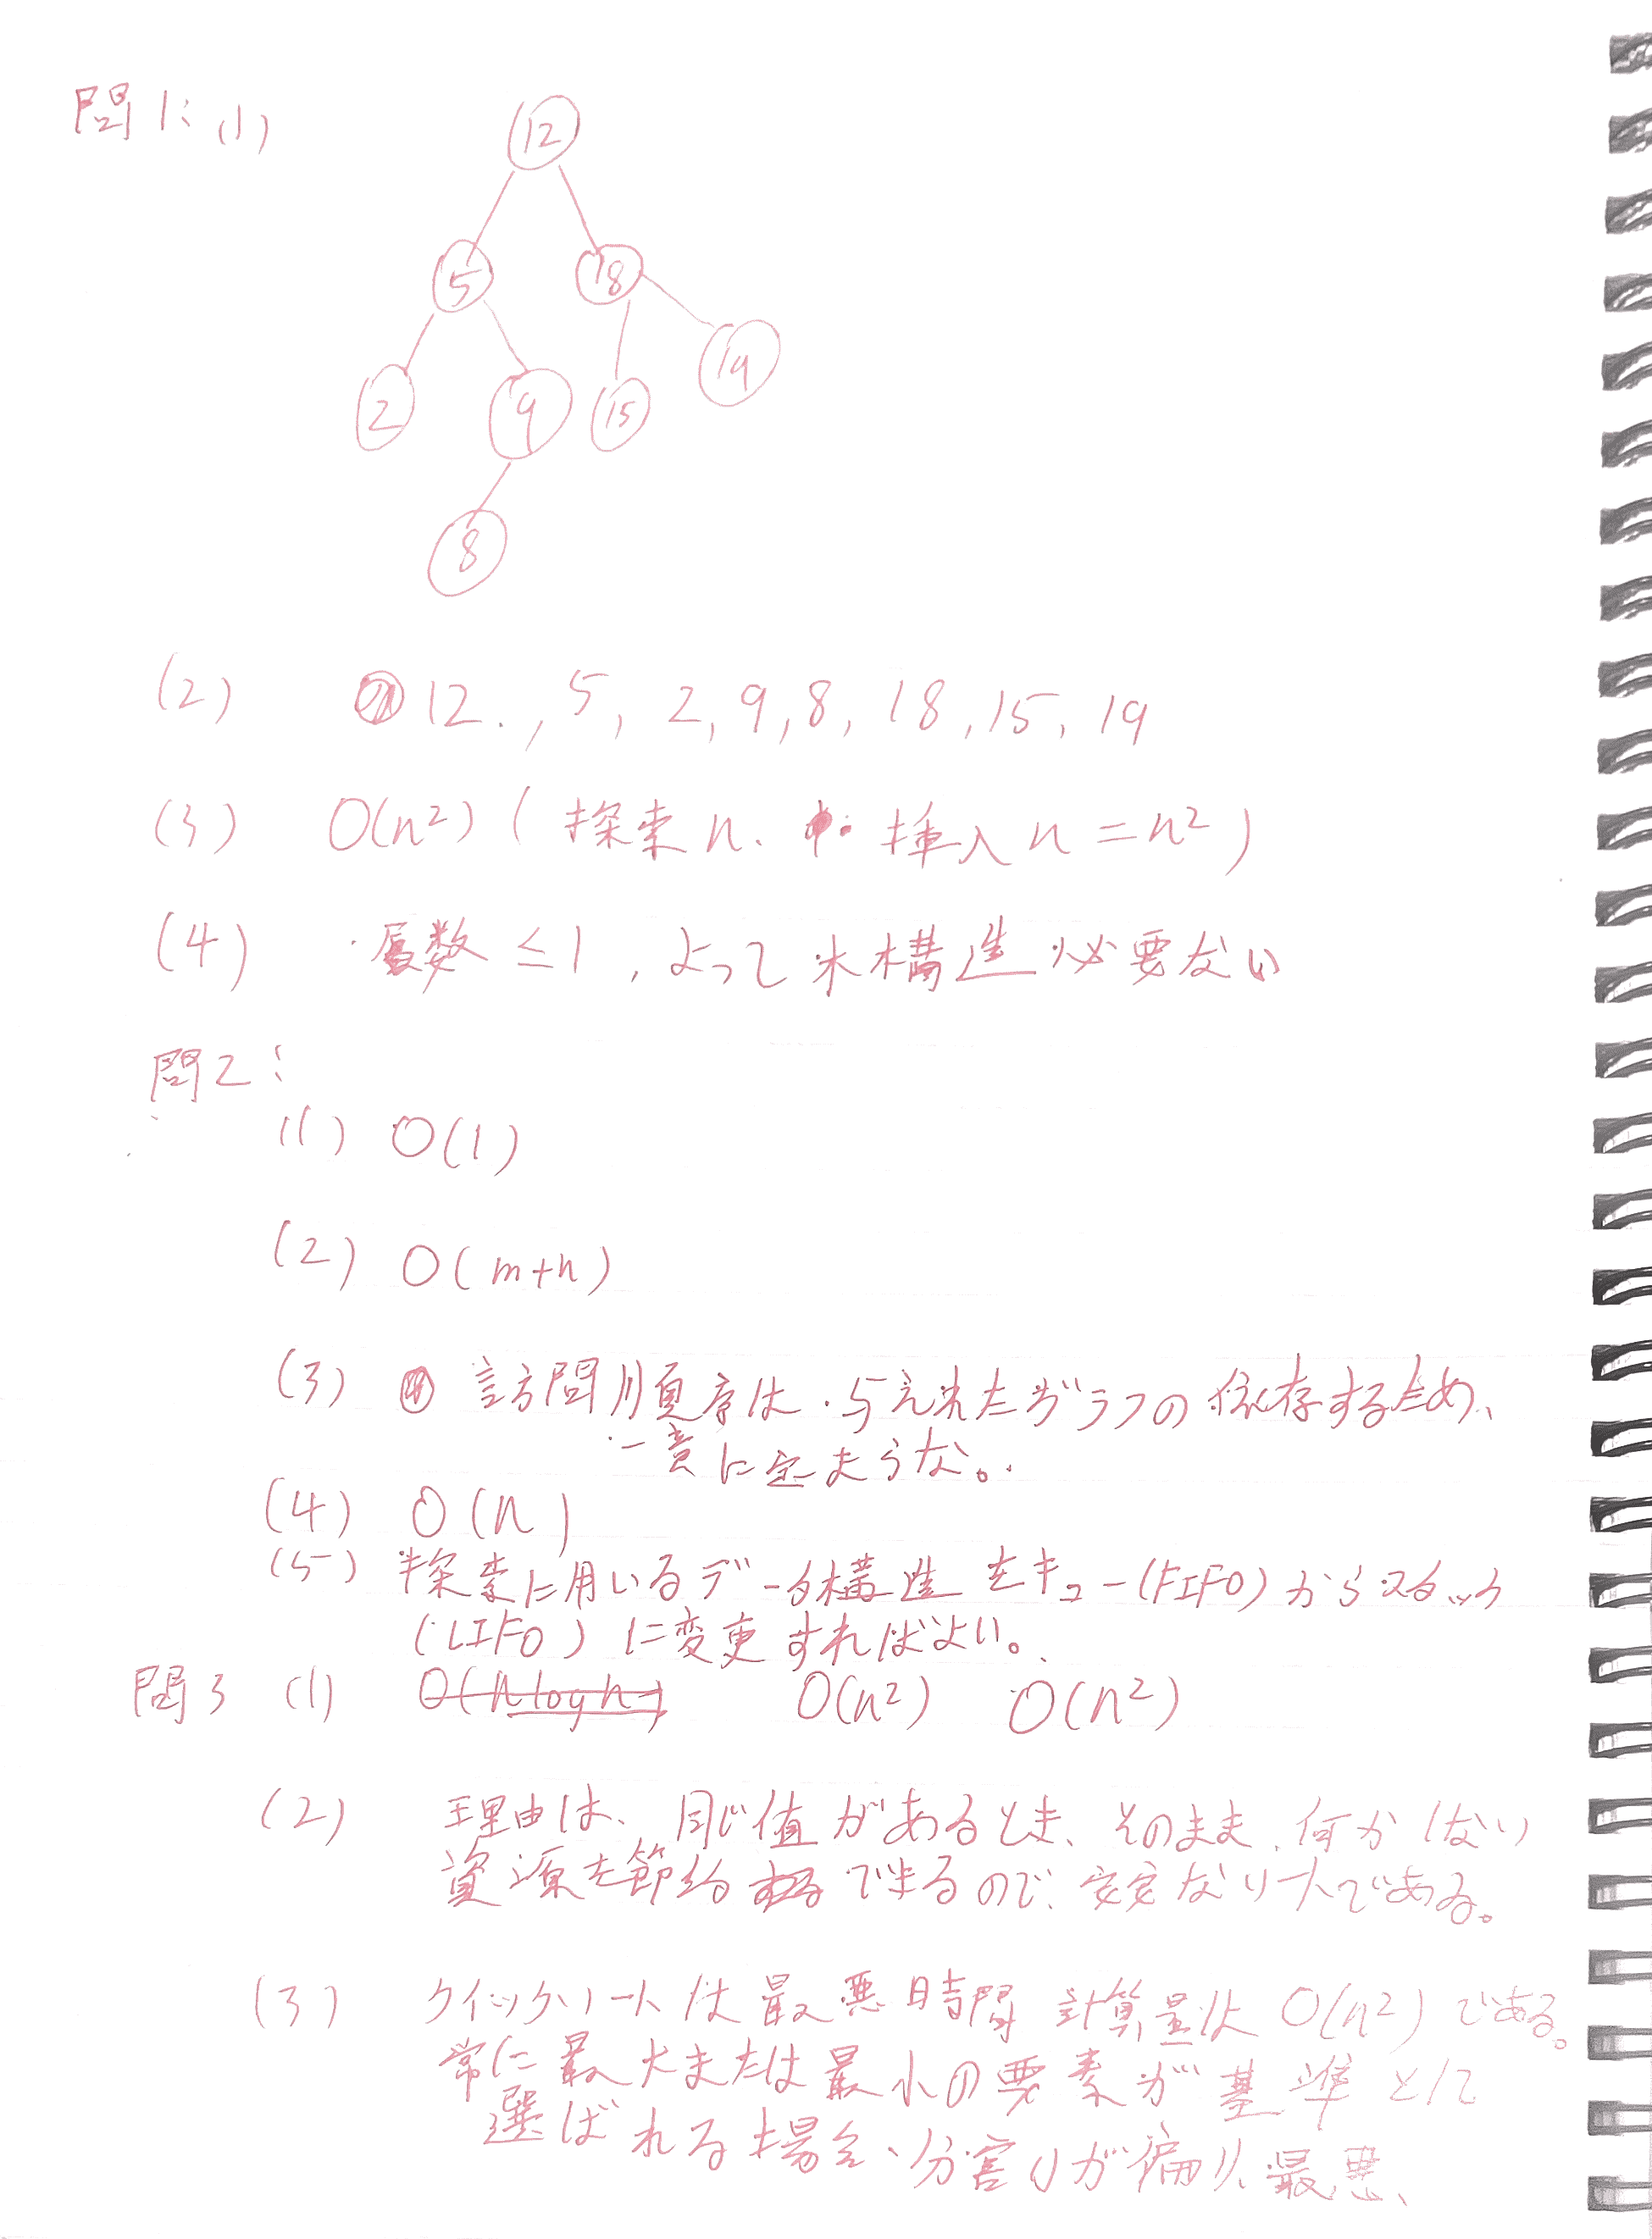 問1: (1)
12
5
18
2
9
15
19
8
(2) 12., 5, 2, 9, 8, 18, 15, 19
(3) O(n²) ( 探索 n、挿入 n = n²)
(4) 数 ≤ 1, よって木構造必要ない
問2:
(1) O(1)
(2) O(m+n)
(3) 訪問順序は、与えれたグラフの依存するため、
一意に定まらな。
(4) O(n)
(5) 探索に用いるデータ構造をキュー(FIFO)からスタック
(LIFO)に変更すればよい。
問3 (1) O(n log n) O(n²) O(n²)
(2) 理由は、同じ値があるとき、そのまま、何かしない
資源を節約できるので、安定なソートである。
(3) クイックソートは最悪時間計算量は O(n²)である。
常に最大または最小の要素が基準として
選ばれる場合、分割が偏り、最悪、